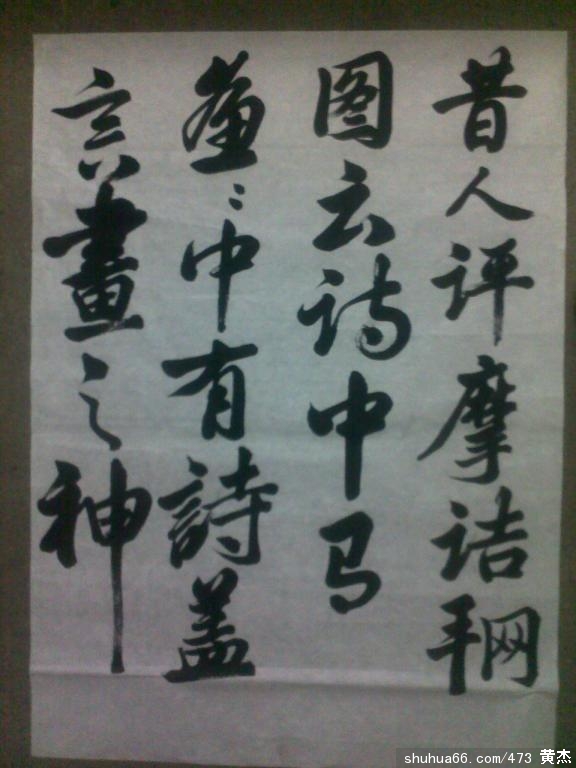 昔人评摩诘辋
图云诗中有
画〻中有詩盖
言畫之神
shuhua66.com/473 黄杰